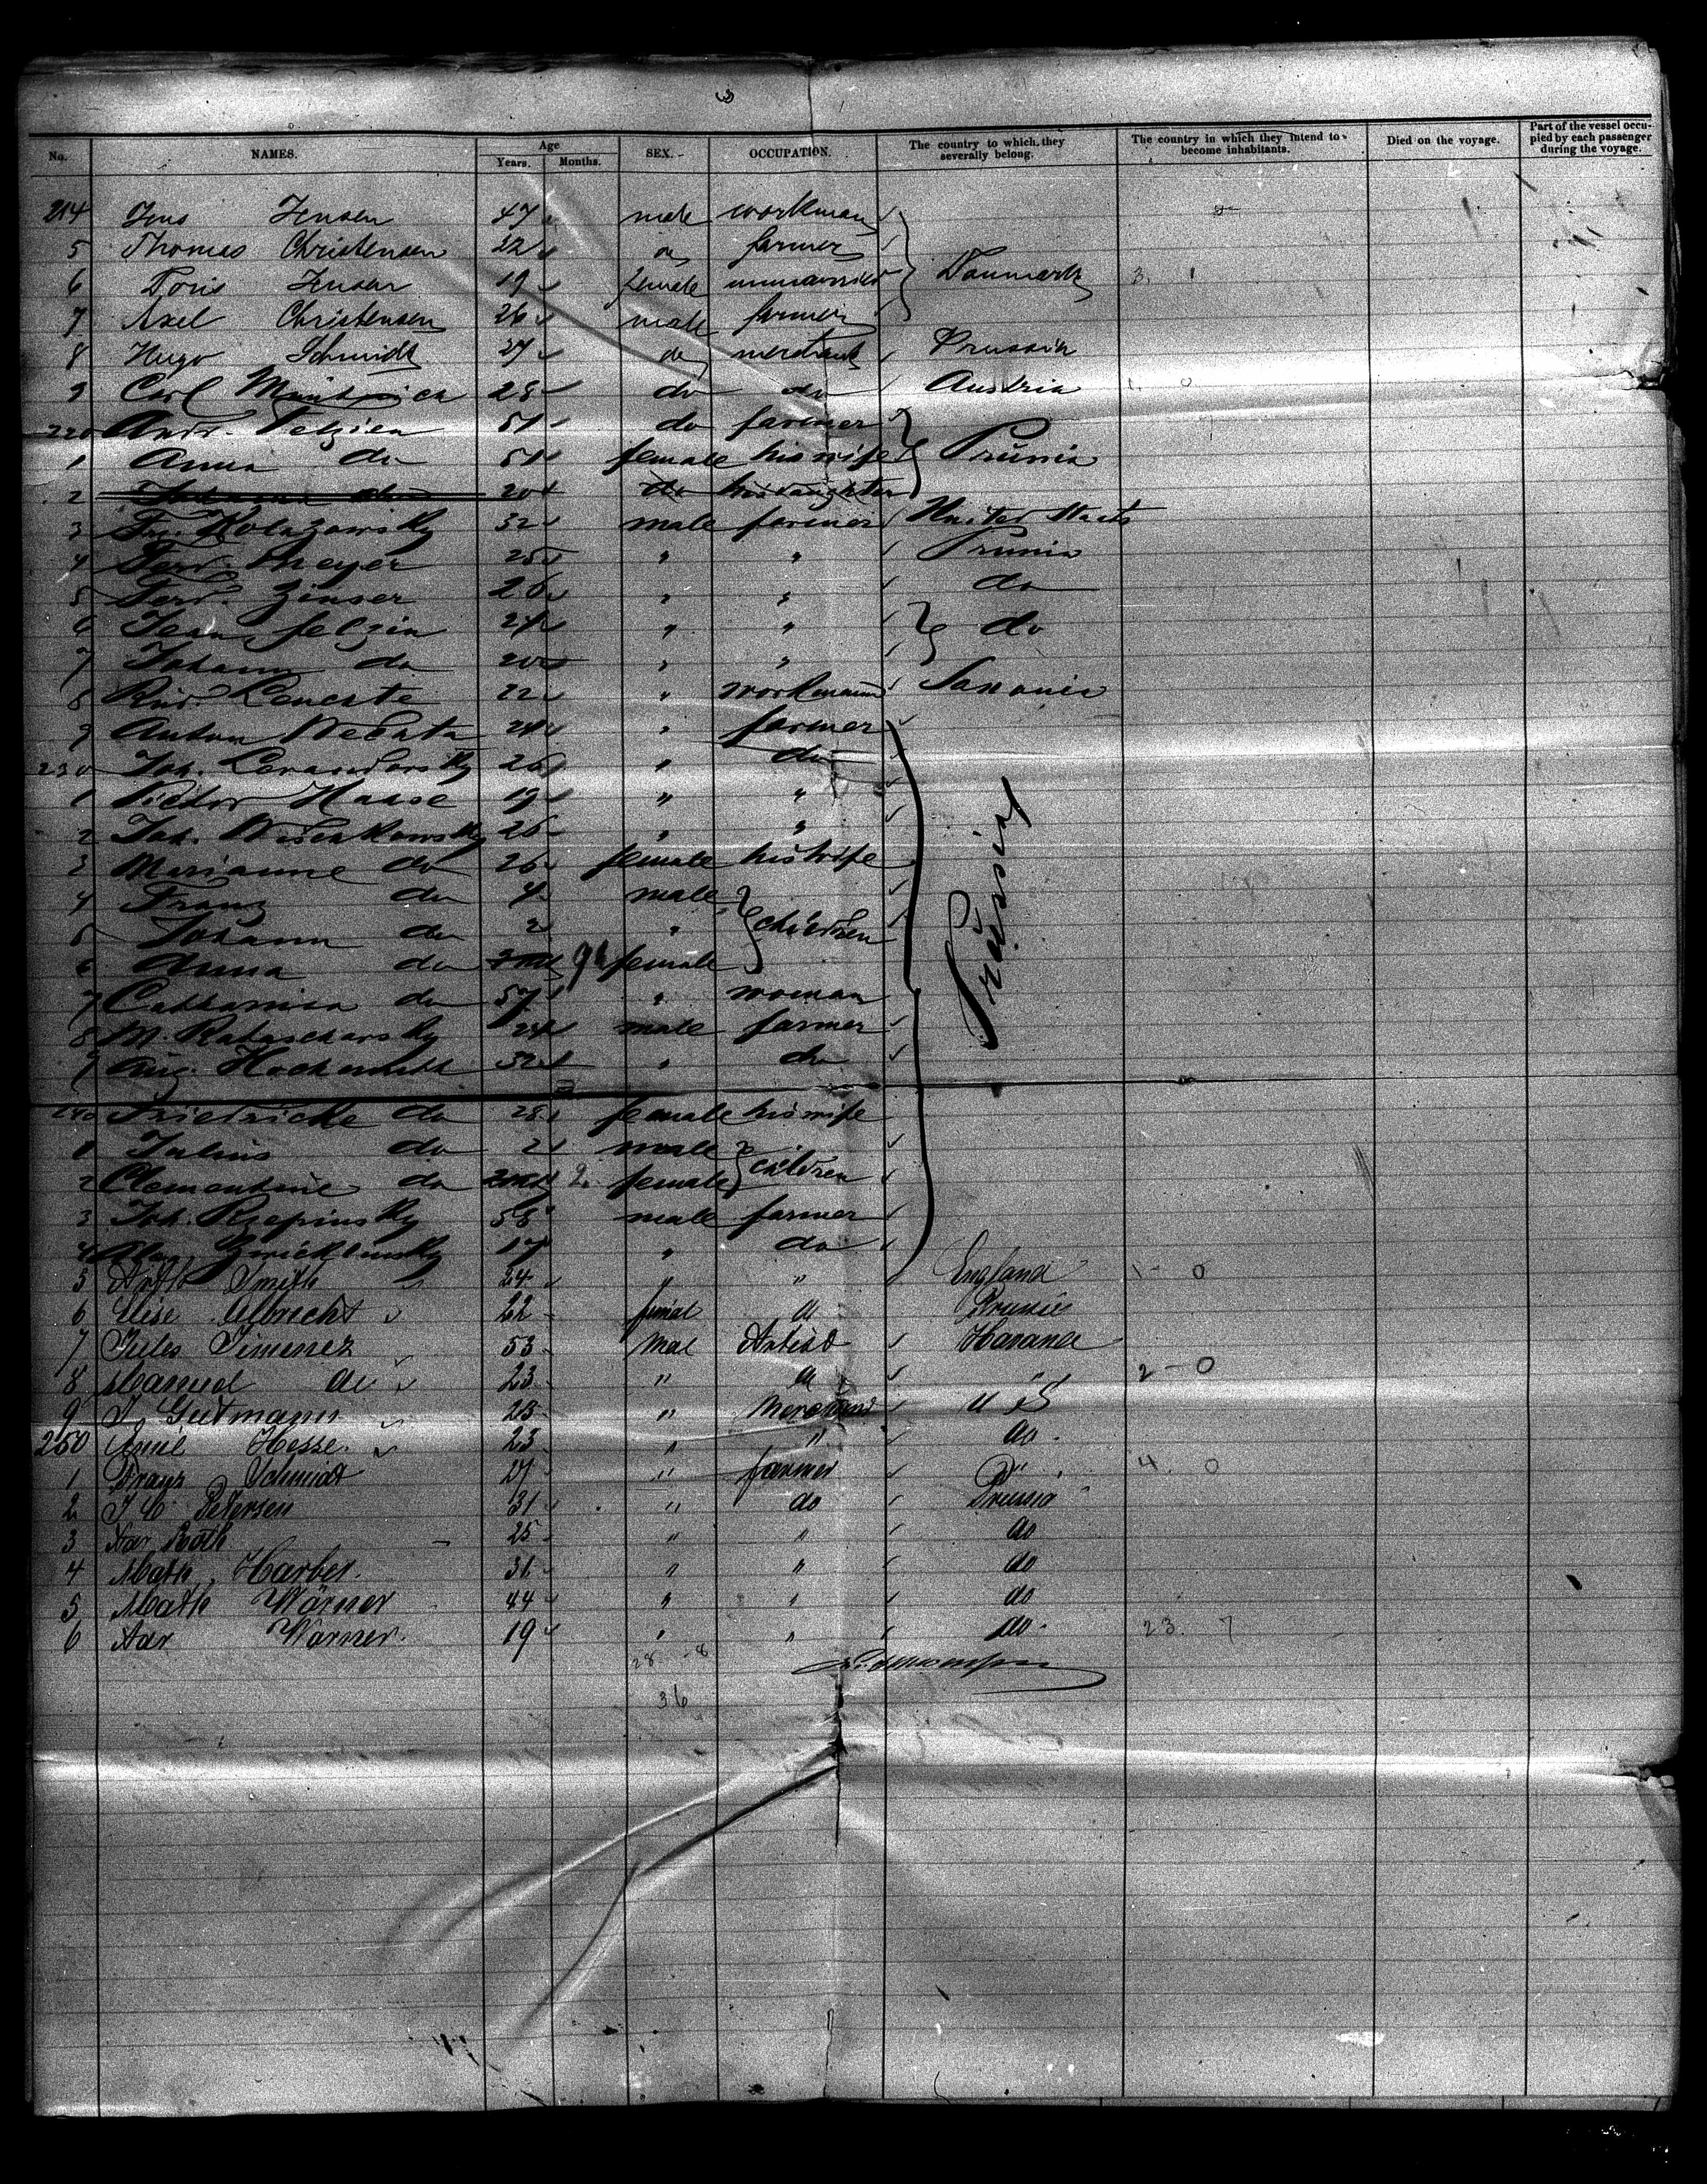 3
No. NAMES. Age Years. Months. SEX. OCCUPATION. The country to which they severally belong. The country in which they intend to become inhabitants. Died on the voyage. Part of the vessel occupied by each passenger during the voyage.
214 Jens Jensen 47 male workman
5 Thomas Christensen 22 do farmer
6 Doris Jensen 19 female unmarried Danmark 3. 1
7 Axel Christensen 26 male farmer
8 Hugo Schmidt 27 do merchant Prussia
9 Carl 28 do do Austria 1 0
220 Andr. Felzien 51 do farmer
1 Anna do 51 female his wife Prussia
2 Johanna do 20 do his daughter
3 32 male farmer United States
4 Ferd. Meyer 25 " " Prussia
5 Ferd. Zinser 26 " " do
6 Felzin 24 " " do
7 Johann do 20 " "
8 Rud. 22 " workman Saxonia
9 Anton 24 " farmer
230 Joh. 26 " do
1 Victor Haase 19 " "
2 Joh. 26 " "
3 Marianne do 26 female his wife
4 Franz do 4 male
5 Johann do 2 " children
6 Anna do 9 female
Prussia
7 Catharina do 57 " woman
8 M. 24 male farmer
9 Aug. 32 " do
240 Friedricke do 28 female his wife
1 Julius do 2 male
2 Clementine do 2 female children
3 Joh. Rzepinsky 58 male farmer
4 17 " do
5 Smith 24 " " England 1 - 0
6 Elise Albrecht 22 femal do Prussia
7 Jules Jimenez 53 Mal Artist Havanna
8 Manuel do 23 " do 2 - 0
9 J Gutmann 23 " Merchand U S
250 Emil Hesse 23 " " do
1 Franz Schmidt 27 " farmer " 4. 0
2 J C Petersen 31 " do Prussia
3 Adr Roth 25 " " do
4 Math. Harber 31 " " do
5 Math Wärner 44 " " do
6 Adr Wärner 19 " " do 23. 7
28 - 8
36